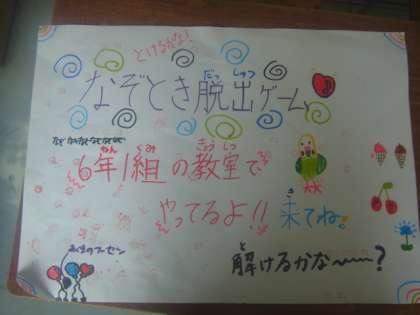 とけるかな!
だっ しゅつ
なぞとき脱出ゲーム
ねん くみ きょう しつ
6年1組の教室で
やってるよ!!
き
来てね。
と
解けるかな~~~?